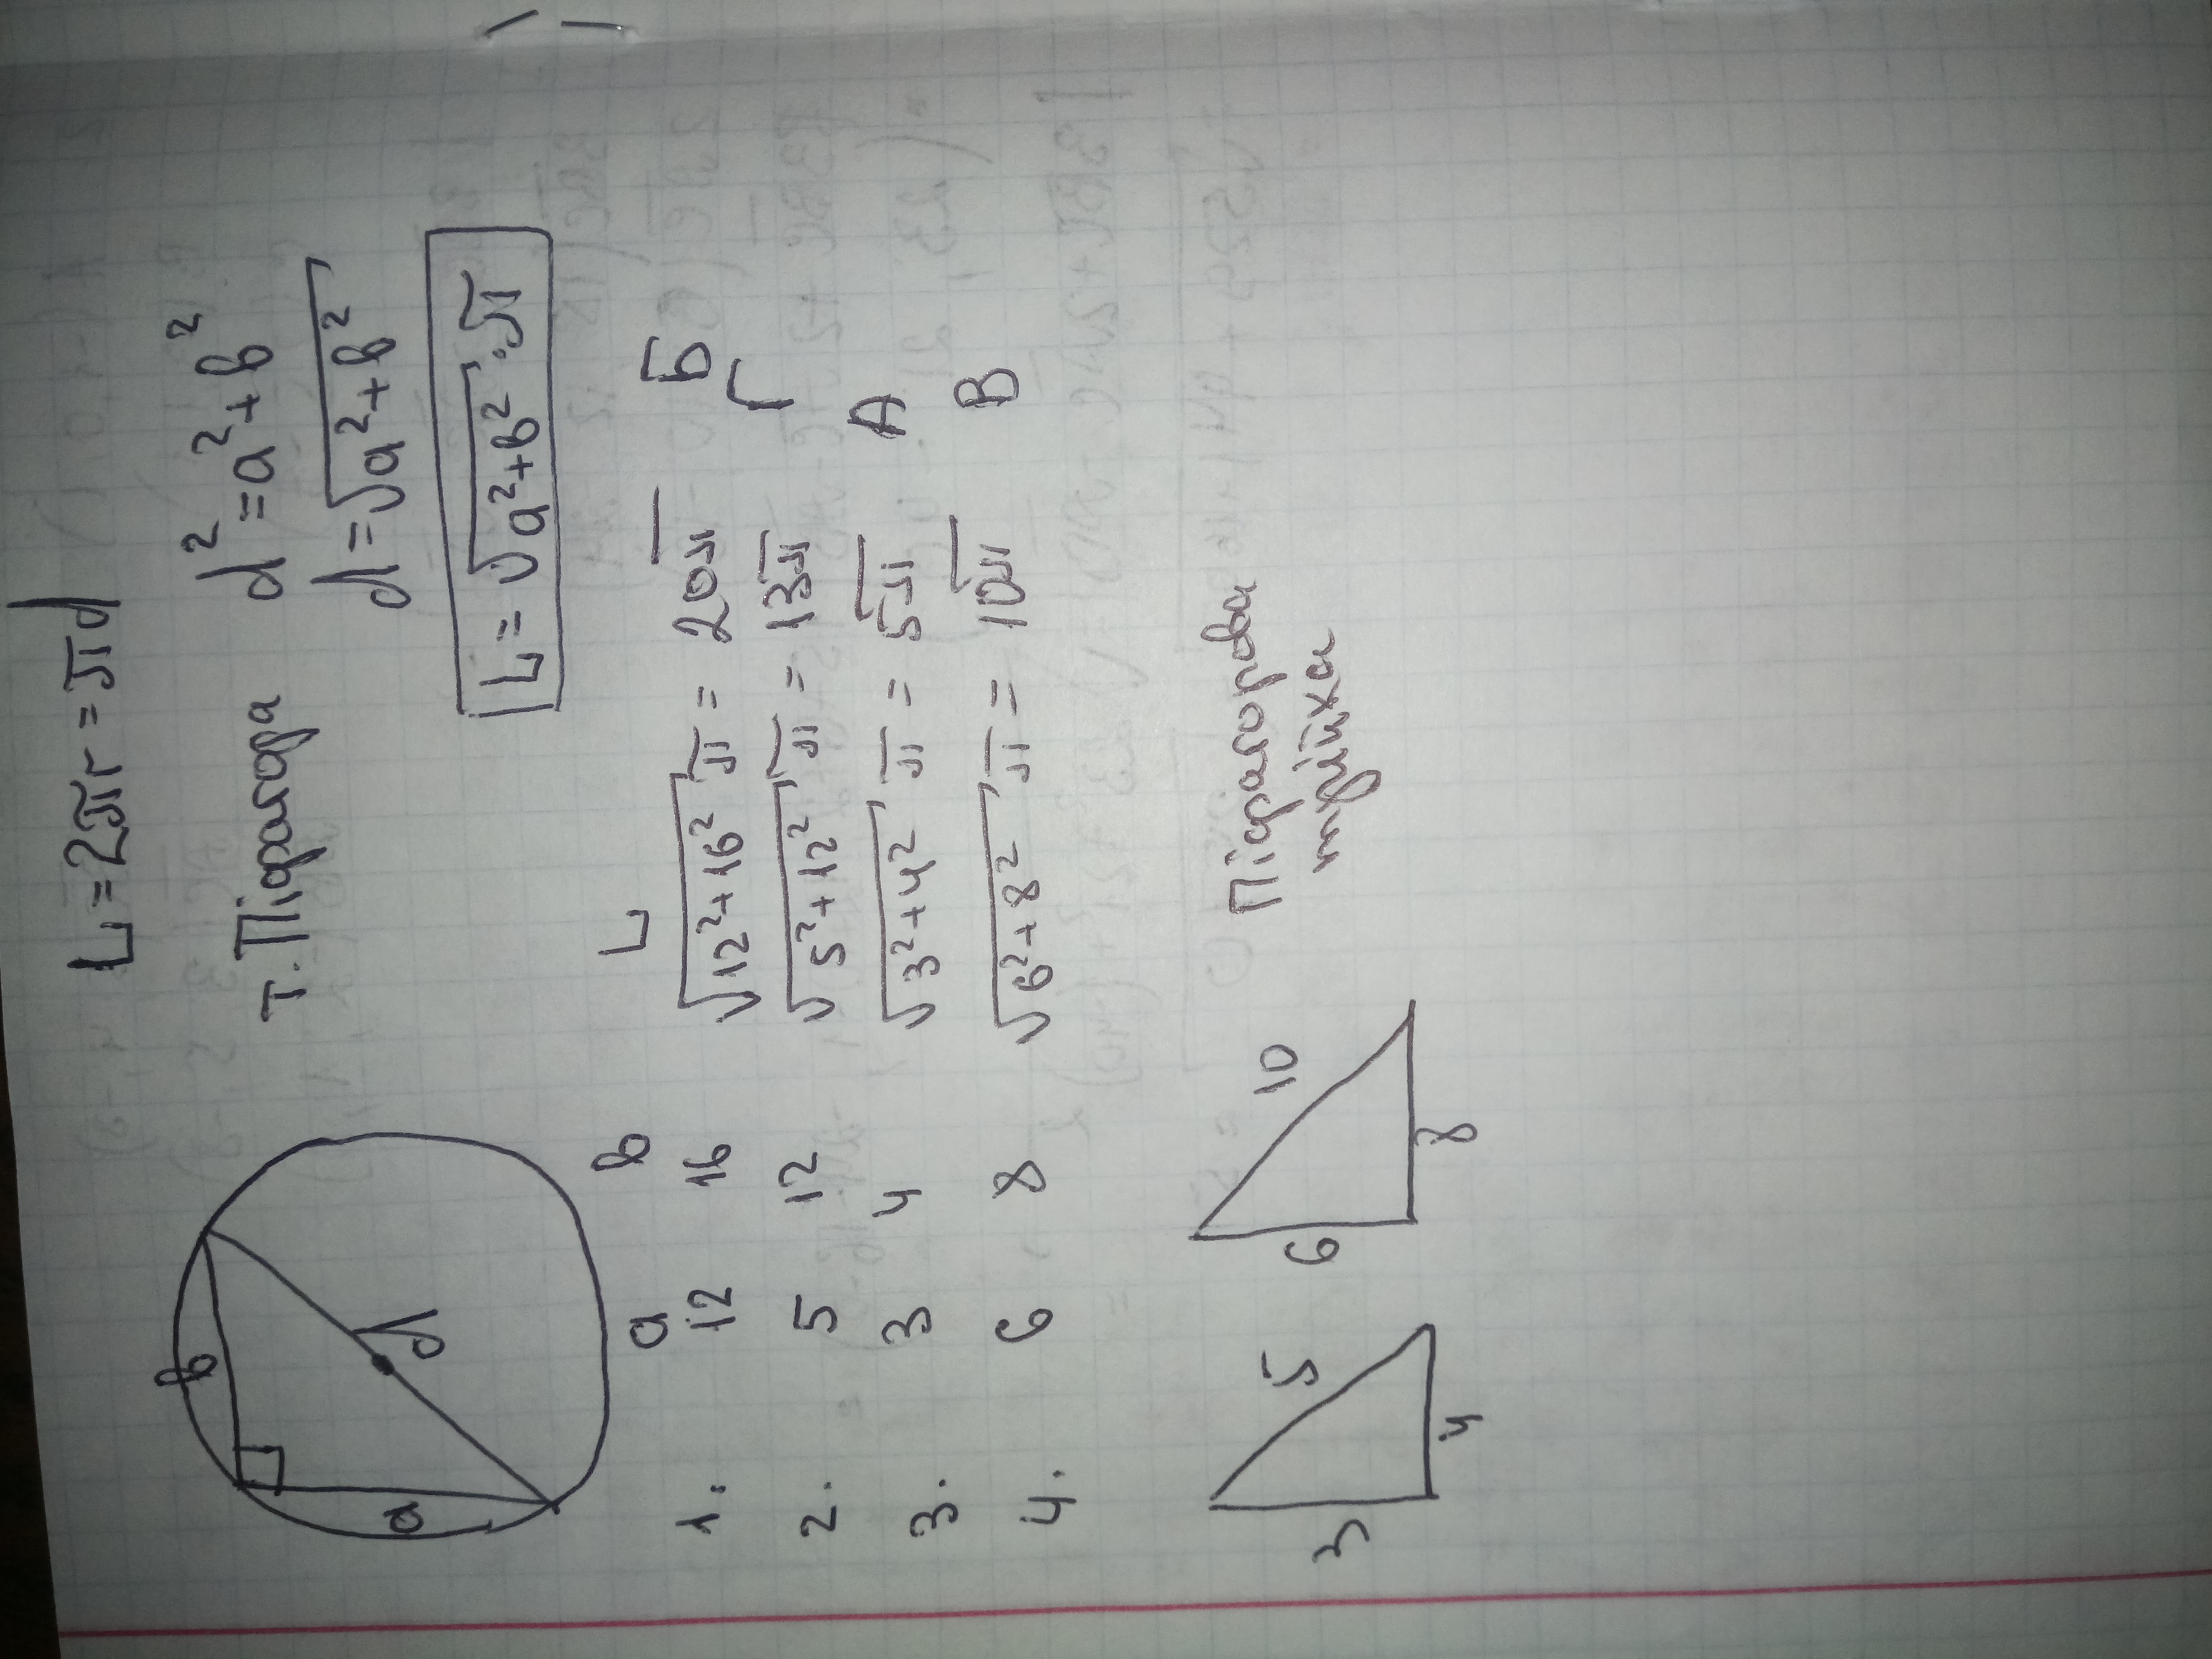 L = 2πr = πd
т. Піфагора d² = a² + b²
d = √a² + b²
L = √a² + b² · π
a b L
1. 12 16 √12² + 16² π = 20π Б
2. 5 12 √5² + 12² π = 13π Г
3. 3 4 √3² + 4² π = 5π А
4. 6 8 √6² + 8² π = 10π В
b
a
d
3 5 4
6 10 8
Піфагорова
трійка